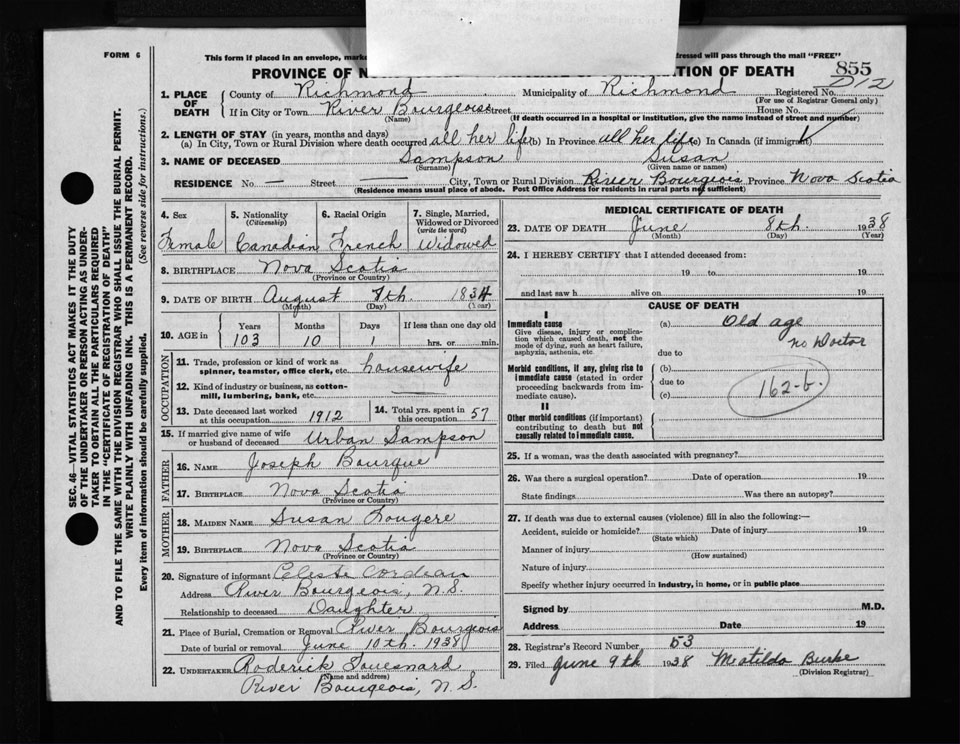 FORM 6
This form if placed in an envelope, marke dressed will pass through the mail "FREE"
PROVINCE OF N ATION OF DEATH 855
1. PLACE OF DEATH County of Richmond Municipality of Richmond Registered No. 212
(For use of Registrar General only)
If in City or Town River Bourgeois Street House No.
(Name) (If death occurred in a hospital or institution, give the name instead of street and number)
2. LENGTH OF STAY (in years, months and days)
(a) In City, Town or Rural Division where death occurred all her life (b) In Province all her life (c) In Canada (if immigrant)
3. NAME OF DECEASED Sampson Susan
(Surname) (Given name or names)
RESIDENCE No. — Street — City, Town or Rural Division River Bourgeois Province Nova Scotia
(Residence means usual place of abode. Post Office Address for residents in rural parts not sufficient)
4. Sex 5. Nationality (Citizenship) 6. Racial Origin 7. Single, Married, Widowed or Divorced (write the word)
Female Canadian French Widowed
8. BIRTHPLACE Nova Scotia
(Province or Country)
9. DATE OF BIRTH August 7th. 1834
(Month) (Day) (Year)
10. AGE in Years Months Days If less than one day old
103 10 1 hrs. or min.
OCCUPATION
11. Trade, profession or kind of work as spinner, teamster, office clerk, etc. housewife
12. Kind of industry or business, as cotton-mill, lumbering, bank, etc. —
13. Date deceased last worked at this occupation 1912 14. Total yrs. spent in this occupation 57
15. If married give name of wife or husband of deceased Urban Sampson
FATHER
16. NAME Joseph Bourque
17. BIRTHPLACE Nova Scotia
(Province or Country)
MOTHER
18. MAIDEN NAME Susan Fougere
19. BIRTHPLACE Nova Scotia
(Province or Country)
20. Signature of informant Celeste Cordeau
Address River Bourgeois, N.S.
Relationship to deceased Daughter
21. Place of Burial, Cremation or Removal River Bourgeois
Date of burial or removal June 10th. 1938
22. UNDERTAKER Roderick Touesnard
(Name and address)
River Bourgeois, N.S.
MEDICAL CERTIFICATE OF DEATH
23. DATE OF DEATH June 8th. 1938
(Month) (Day) (Year)
24. I HEREBY CERTIFY that I attended deceased from:
19 to 19
and last saw h alive on 19
CAUSE OF DEATH
I
Immediate cause (a) Old age
Give disease, injury or complication which caused death, not the mode of dying, such as heart failure, asphyxia, asthenia, etc.
no Doctor
due to
Morbid conditions, if any, giving rise to immediate cause (stated in order proceeding backwards from immediate cause). (b)
due to
(c)
162-b.
II
Other morbid conditions (if important) contributing to death but not causally related to immediate cause.
25. If a woman, was the death associated with pregnancy?
26. Was there a surgical operation? Date of operation 19
State findings Was there an autopsy?
27. If death was due to external causes (violence) fill in also the following:—
Accident, suicide or homicide? Date of injury 19
(State which)
Manner of injury
(How sustained)
Nature of injury
Specify whether injury occurred in industry, in home, or in public place
Signed by M.D.
Address Date 19
28. Registrar's Record Number 53
29. Filed June 9th 1938 Matilda Burke
(Division Registrar)
SEC. 46—VITAL STATISTICS ACT MAKES IT THE DUTY
OF THE UNDERTAKER OR PERSON ACTING AS UNDER-
TAKER TO OBTAIN ALL THE PARTICULARS REQUIRED
IN THE "CERTIFICATE OF REGISTRATION OF DEATH"
AND TO FILE THE SAME WITH THE DIVISION REGISTRAR WHO SHALL ISSUE THE BURIAL PERMIT.
WRITE PLAINLY WITH UNFADING INK. THIS IS A PERMANENT RECORD.
Every item of information should be carefully supplied. (See reverse side for instructions.)